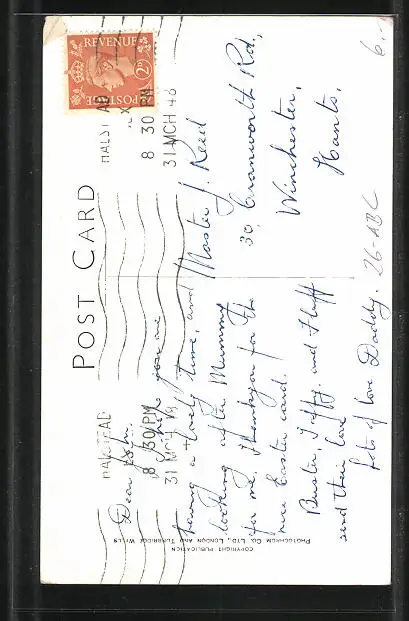 POST CARD
REVENUE
2D
POSTAGE
HALSTEAD
8 30 PM
31 MCH 48
HALSTEAD
8 30 PM
Dear John.
I hope you are
having a lovely time, and
looking after Mummy
for me. Thankyou for the
nice Easter card.
Buster, Tiffy, and Fluff
send their love
Lots of love Daddy.
Master J. Reed
30, Cranworth Rd,
Winchester,
Hants,
26-ABC
6.
COPYRIGHT PUBLICATION
PHOTOCHROM CO. LTD., LONDON AND TUNBRIDGE WELLS